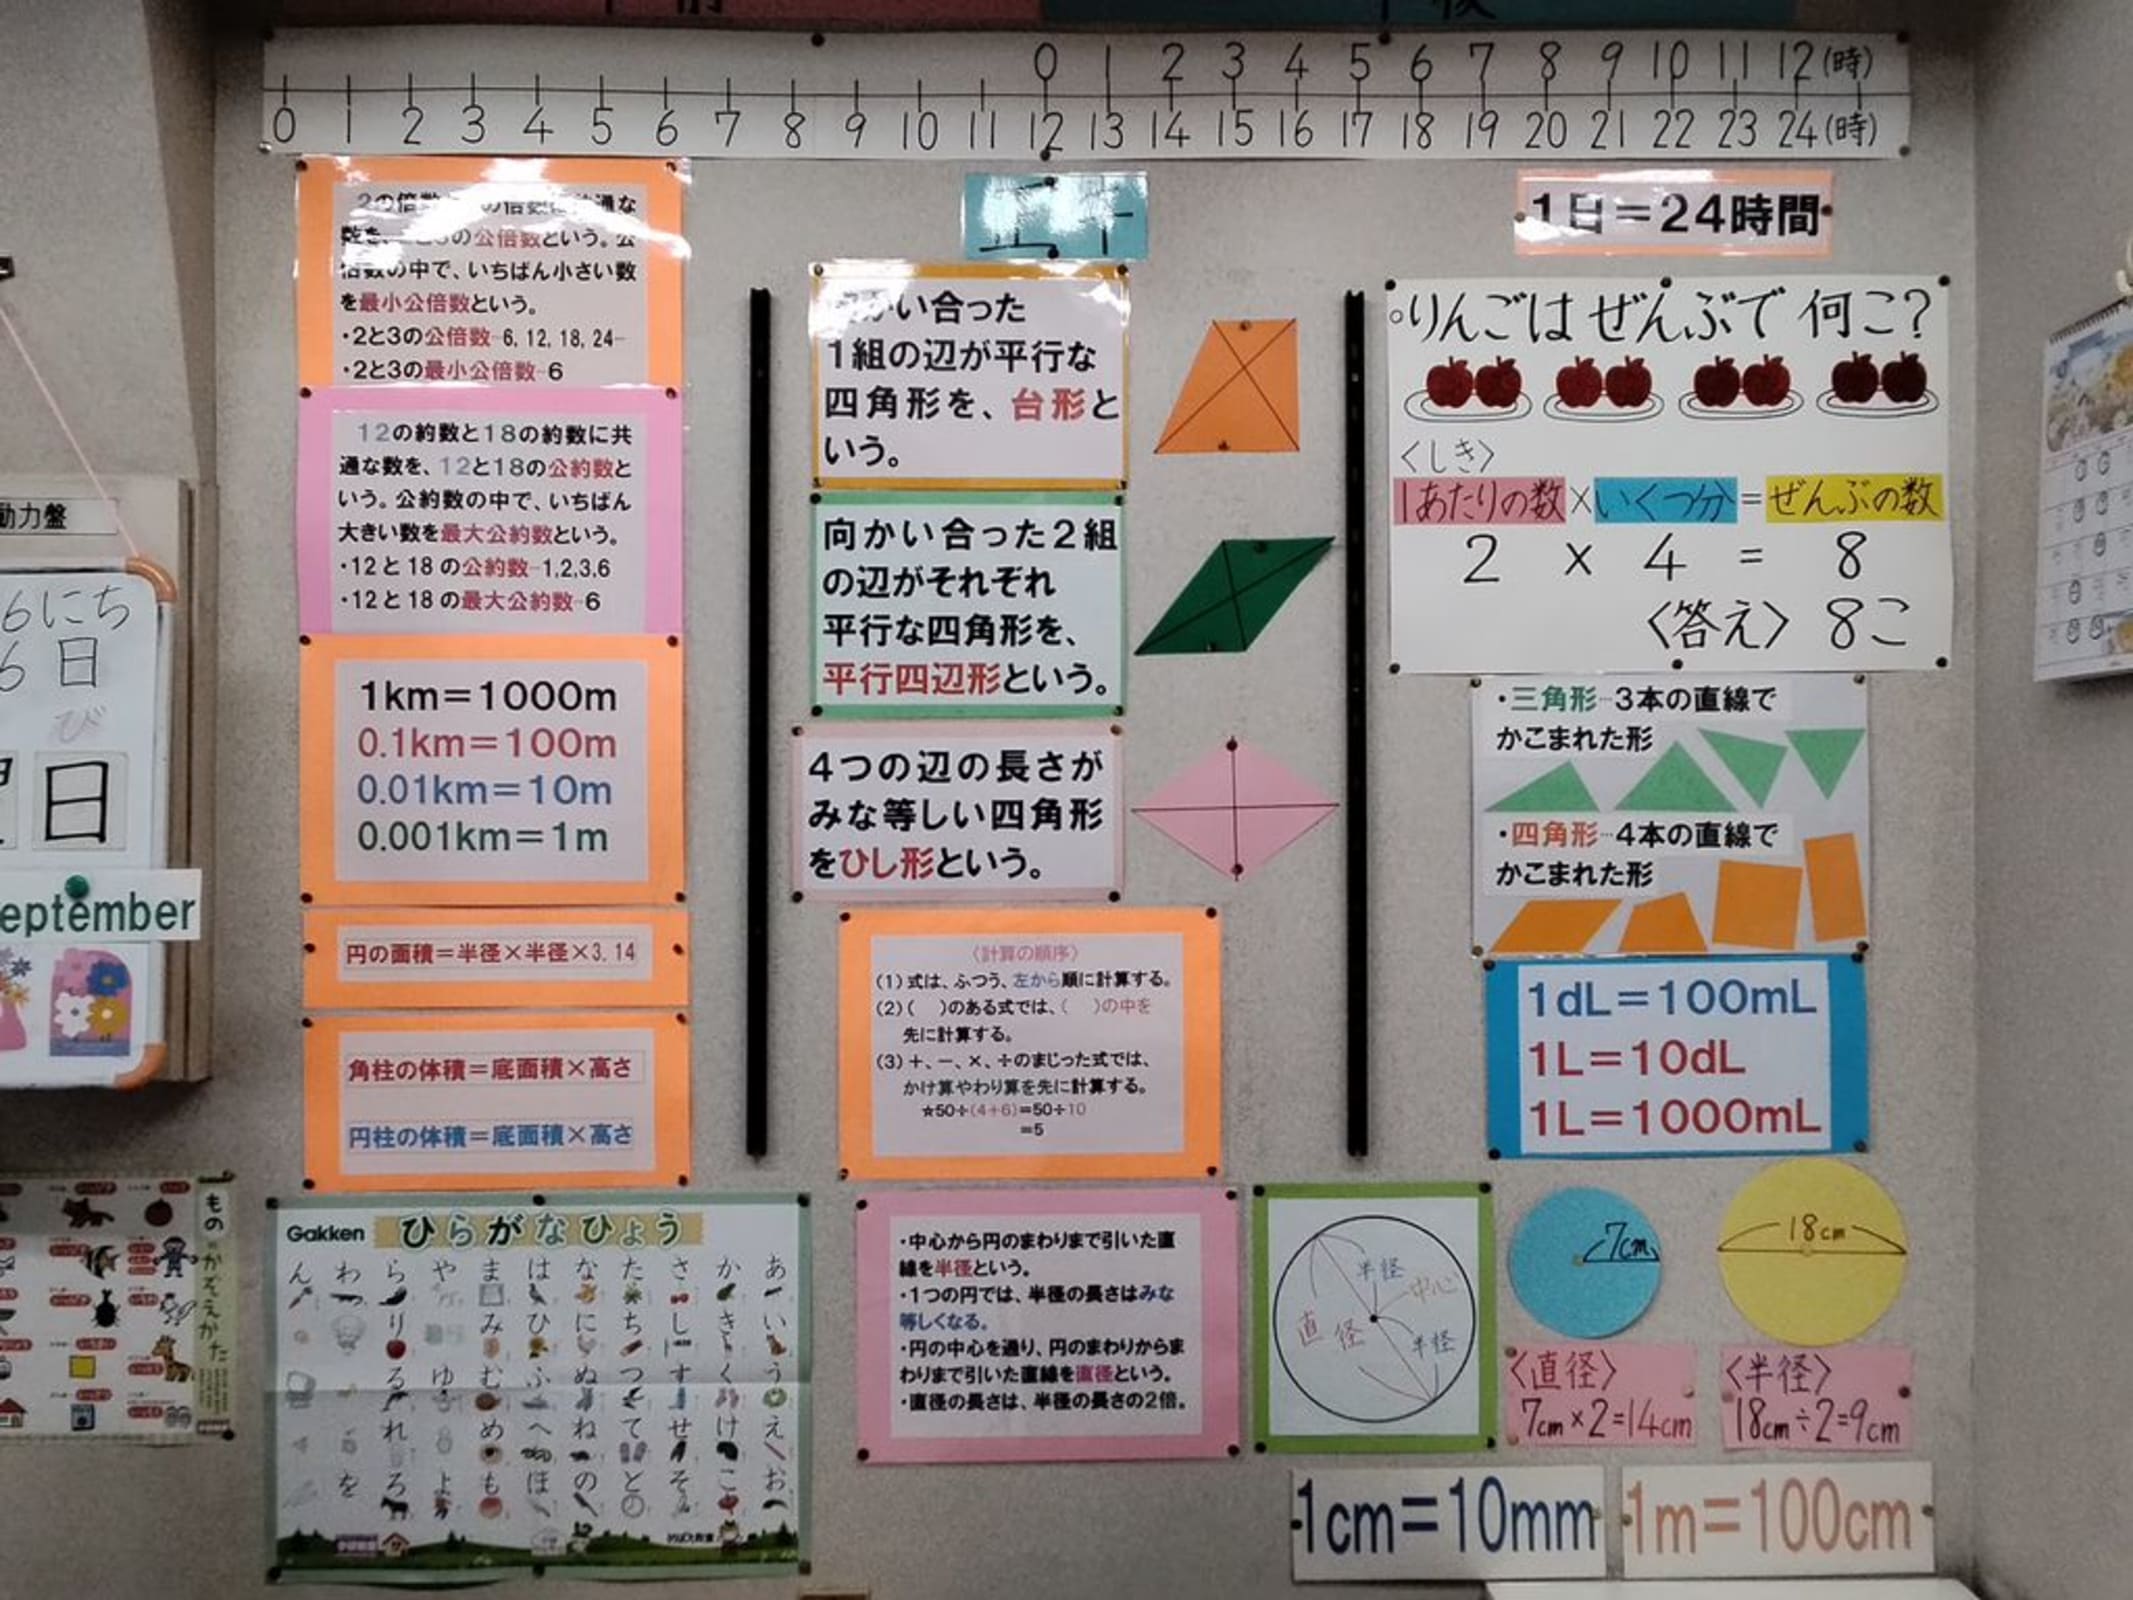 0 1 2 3 4 5 6 7 8 9 10 11 12(時)
0 1 2 3 4 5 6 7 8 9 10 11 12 13 14 15 16 17 18 19 20 21 22 23 24(時)
を最小公倍数という。
・2と3の公倍数…6, 12, 18, 24…
・2と3の最小公倍数…6
12の約数と18の約数に共
通な数を、12と18の公約数と
いう。公約数の中で、いちばん
大きい数を最大公約数という。
・12と18の公約数…1,2,3,6
・12と18の最大公約数…6
1km=1000m
0.1km=100m
0.01km=10m
0.001km=1m
円の面積=半径×半径×3.14
角柱の体積=底面積×高さ
円柱の体積=底面積×高さ
Gakken ひらがなひょう
ん わ ら や ま は な た さ か あ
り み ひ に ち し き い
る ゆ む ふ ぬ つ す く う
れ め へ ね て せ け え
を ろ よ も ほ の と そ こ お
かい合った
1組の辺が平行な
四角形を、台形と
いう。
向かい合った2組
の辺がそれぞれ
平行な四角形を、
平行四辺形という。
4つの辺の長さが
みな等しい四角形
をひし形という。
〈計算の順序〉
(1)式は、ふつう、左から順に計算する。
(2)( )のある式では、( )の中を
先に計算する。
(3)+、−、×、÷のまじった式では、
かけ算やわり算を先に計算する。
☆50÷(4+6)=50÷10
=5
・中心から円のまわりまで引いた直
線を半径という。
・1つの円では、半径の長さはみな
等しくなる。
・円の中心を通り、円のまわりからま
わりまで引いた直線を直径という。
・直径の長さは、半径の長さの2倍。
半径
中心
直径
半径
1日=24時間
○りんごは ぜんぶで 何こ?
〈しき〉
1あたりの数×いくつ分=ぜんぶの数
2 × 4 = 8
〈答え〉 8こ
・三角形…3本の直線で
かこまれた形
・四角形…4本の直線で
かこまれた形
1dL=100mL
1L=10dL
1L=1000mL
7cm
18cm
〈直径〉
7cm×2=14cm
〈半径〉
18cm÷2=9cm
1cm=10mm
1m=100cm
動力盤
6にち
6日
び
日
eptember
もの
かぞえかた